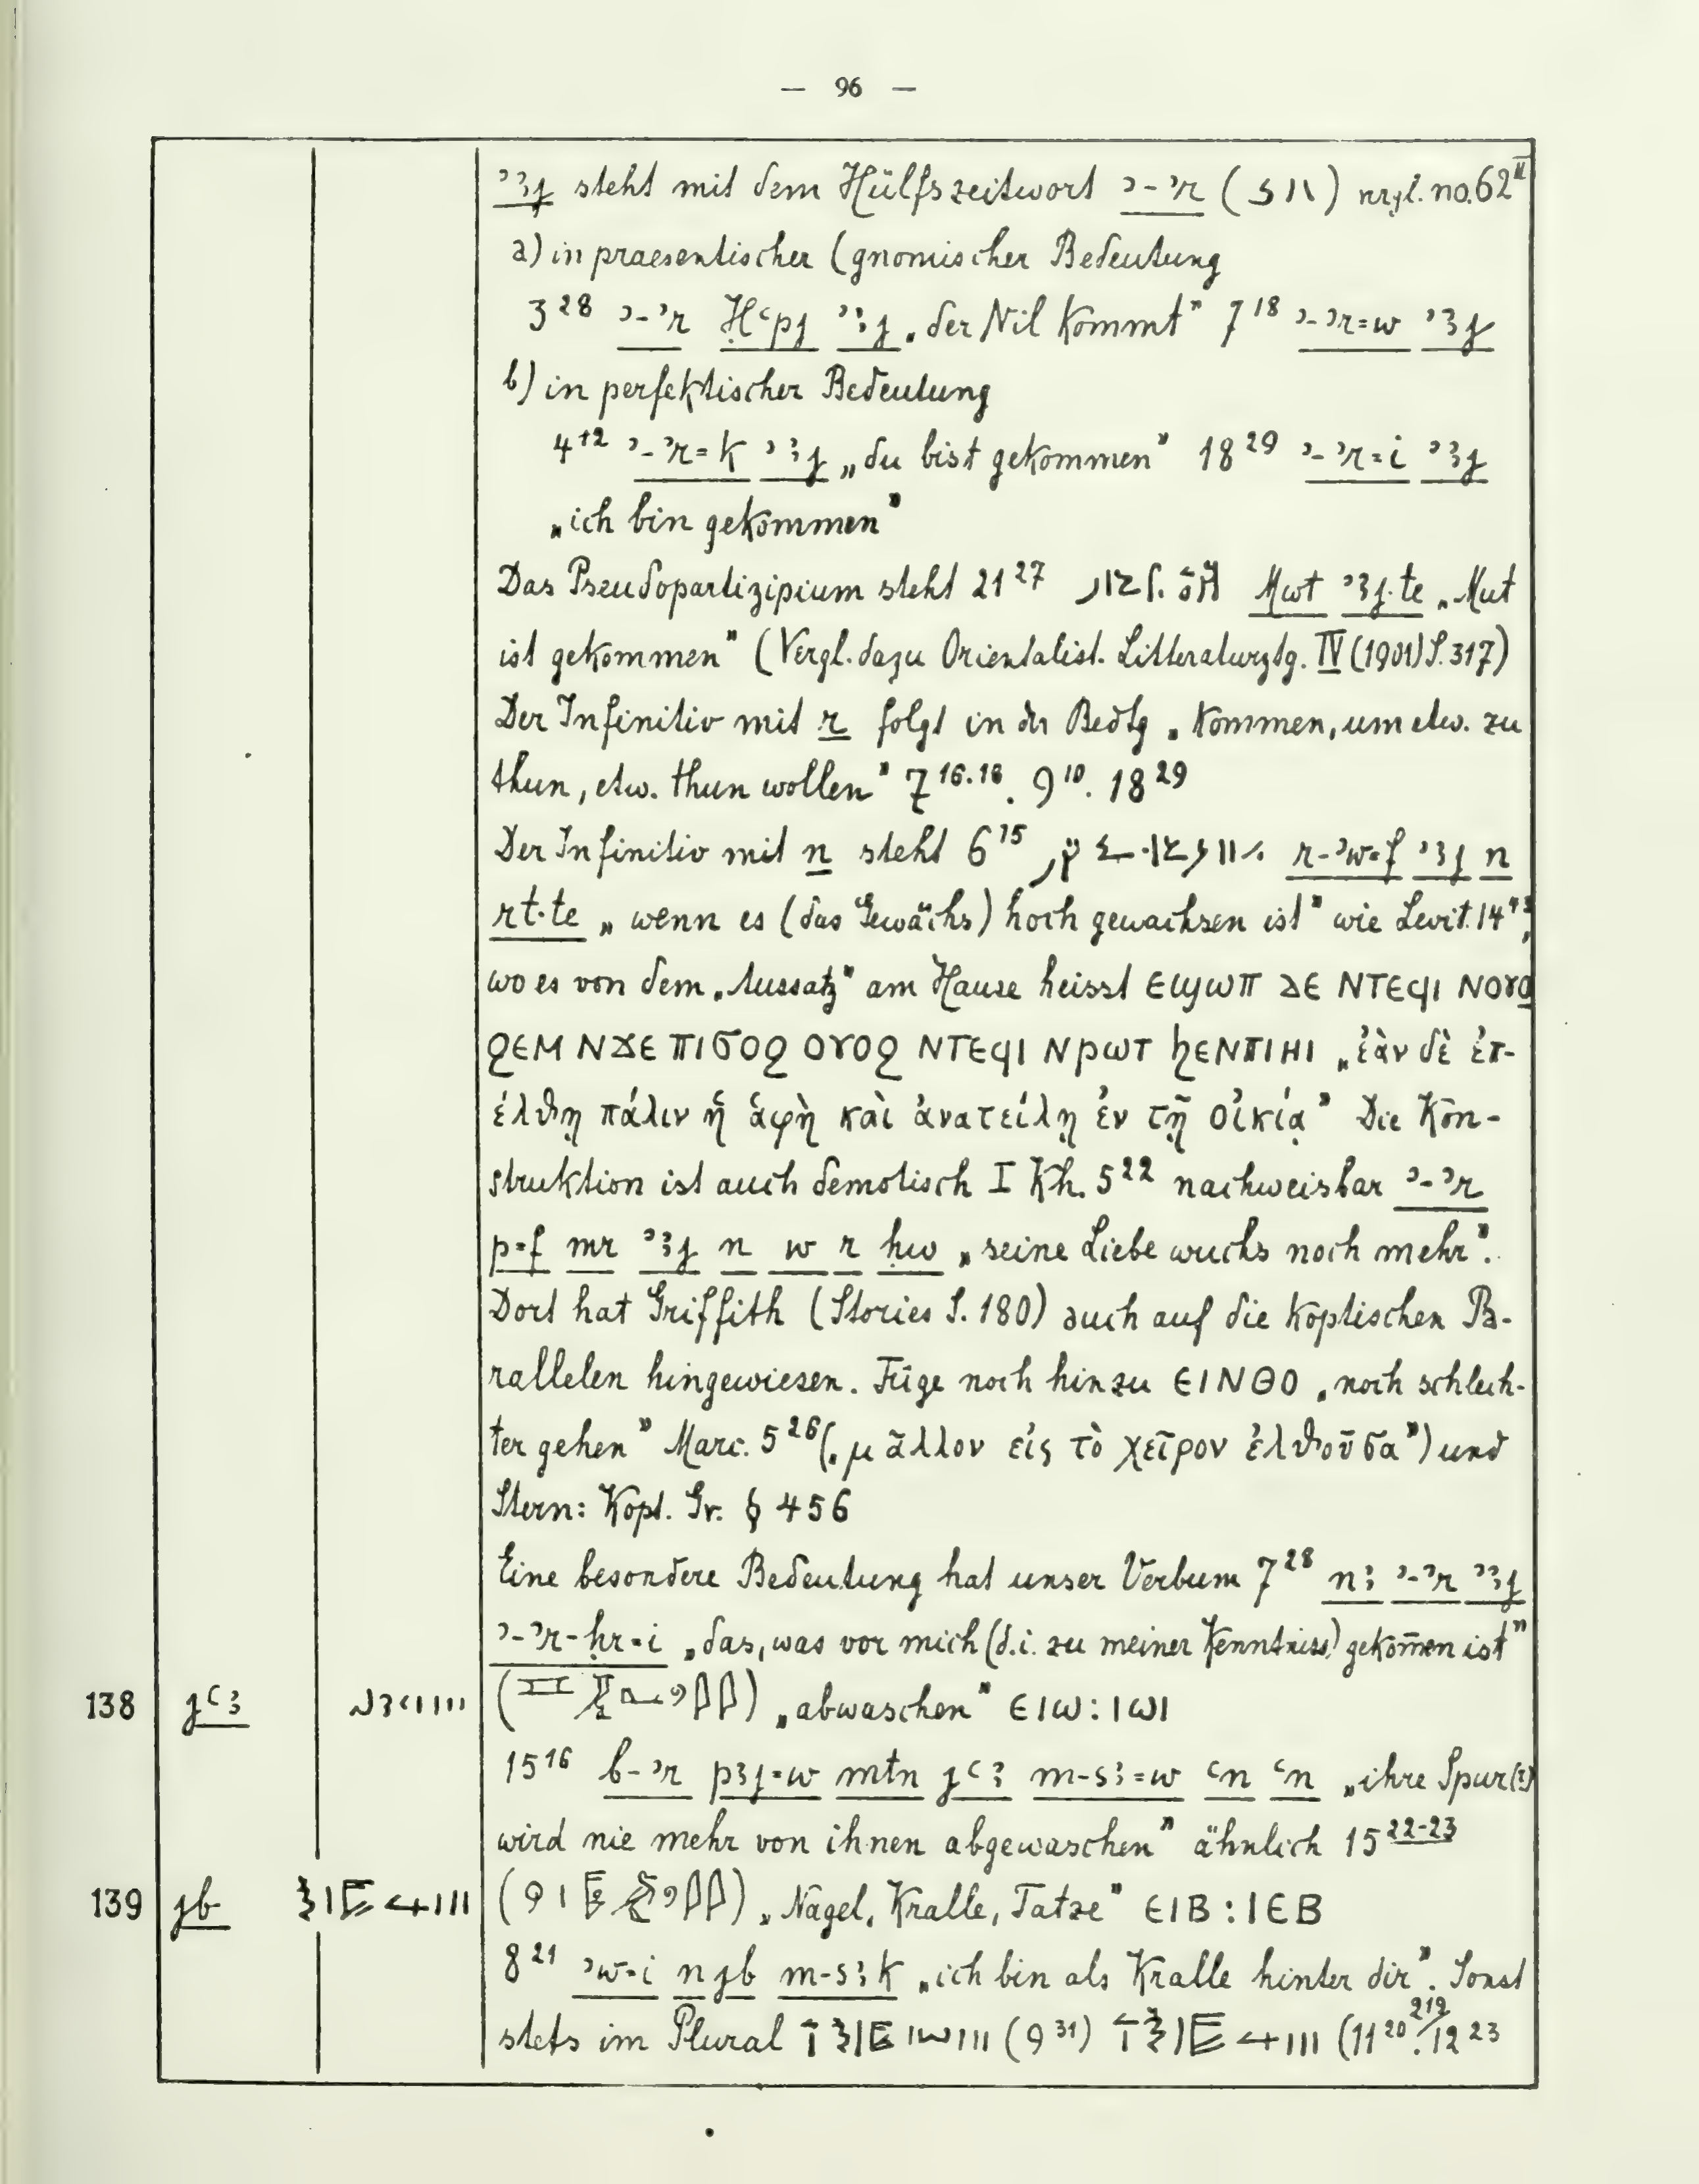 — 96 —
ʾꜣj steht mit dem Hülfszeitwort ʾ-ʾr ( ) vrgl. no. 62 II
a) in praesentischer (gnomischer Bedeutung
3²⁸ ʾ-ʾr Ḥʿpj ʾꜣj „der Nil kommt" 7¹⁸ ʾ-ʾr=w ʾꜣj
b) in perfektischer Bedeutung
4¹² ʾ-ʾr=k ʾꜣj „du bist gekommen" 18²⁹ ʾ-ʾr=i ʾꜣj
„ich bin gekommen"
Das Pseudopartizipium steht 21²⁷ Mwt ʾꜣj·te „Mut
ist gekommen" (Vergl. dazu Orientalist. Litteraturztg. IV (1901) S. 317)
Der Infinitiv mit r folgt in der Bedtg „kommen, um etw. zu
thun, etw. thun wollen" 7¹⁶·¹⁸. 9¹⁰. 18²⁹
Der Infinitiv mit n steht 6¹⁵ r-ʾw=f ʾꜣj n
rt·te „wenn es (das Gewächs) hoch gewachsen ist" wie Levit. 14
wo es von dem „Aussatz" am Hause heisst ⲉϣⲱⲡ ⲇⲉ ⲛⲧⲉϥⲓ ⲛⲟⲩⲟ
ϩⲉⲙ ⲛϫⲉ ⲡⲓϭⲟϩ ⲟⲩⲟϩ ⲛⲧⲉϥⲓ ⲛⲣⲱⲧ ϧⲉⲛⲡⲓⲏⲓ „ἐὰν δὲ ἐπ-
έλθῃ πάλιν ἡ ἁφὴ καὶ ἀνατείλῃ ἐν τῇ οἰκίᾳ" Die Kon-
struktion ist auch demotisch I Kh. 5²² nachweisbar ʾ-ʾr
p=f mr ʾꜣj n w r ḥw „seine Liebe wuchs noch mehr".
Dort hat Griffith (Stories S. 180) auch auf die koptischen Pa-
rallelen hingewiesen. Füge noch hinzu ⲉⲓⲛⲑⲟ „noch schlech-
ter gehen" Marc. 5²⁶ („μᾶλλον εἰς τὸ χεῖρον ἐλθοῦσα") und
Stern: Kopt. Gr. § 456
Eine besondere Bedeutung hat unser Verbum 7²⁸ nꜣ ʾ-ʾr ʾꜣj
ʾ-ʾr-ḥr=i „das, was vor mich (d.i. zu meiner Kenntniss) gekom̄en ist"
138 jʿꜣ ( ) „abwaschen" ⲉⲓⲱ : ⲓⲱⲓ
15¹⁶ b-ʾr pꜣj=w mtn jʿꜣ m-sꜣ=w ʿn ʿn „ihre Spur(?)
wird nie mehr von ihnen abgewaschen" ähnlich 15²²⁻²³
139 jb ( ) „Nagel, Kralle, Tatze" ⲉⲓⲃ : ⲓⲉⲃ
8²¹ ʾw=i n jb m-sꜣ k „ich bin als Kralle hinter dir". Sonst
stets im Plural (9³¹) (11²⁰ 12²³